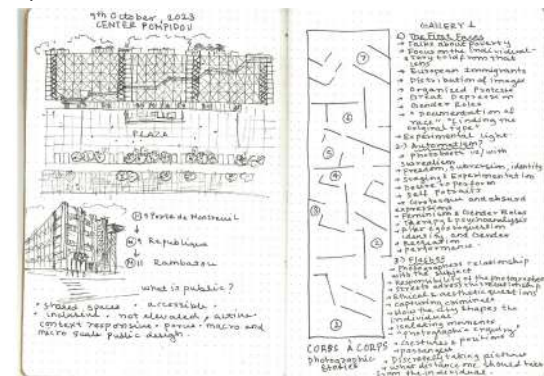 9th October, 2023
CENTER POMPIDOU
PLAZA
M 9 Porte de Montreuil
↓
Republique
↓
M 11 Rambateau
what is public?
• shared spaces • accessible •
inclusive • not elevated, active •
context responsive • porus • macro and
micro scale public design.
7
6
5
4
3
2
1
CORPS À CORPS
photographic
stories
GALLERY 1
1) The First Faces
→ Talks about poverty
→ Focus on the individual -
story told from that
lens
→ European Immigrants
→ Distribution of images
→ Organized Protests
→ Great Depression
→ Gender Roles
→ "Documentation of
race" "Finding the
original type"
→ Experimental light
2) Automatism?
→ Photobooth
surrealism
→ Freedom, subversion, identity
→ Staging & Experimentation
→ Desire to perform
→ Self Potraits
→ Grotesque and absurd
expressions
→ Feminism & Gender Roles
→ Therapy & psychoanalysis
→ Alter egos question
identity and Gender
→ Recreation
→ performance.
3) Flashes
→ Photographers relationship
with the subject
→ Responsibility of the photographer
→ Streets adress this relationship
→ Ethical & aesthetic questions
→ Capturing criminals
→ How the city shapes the
individual
→ Isolating moments
→ "photographic enquiry"
→ Gestures & positions
→ passengers
→ Discretely taking pictures
→ What distance one should take
from the individual.